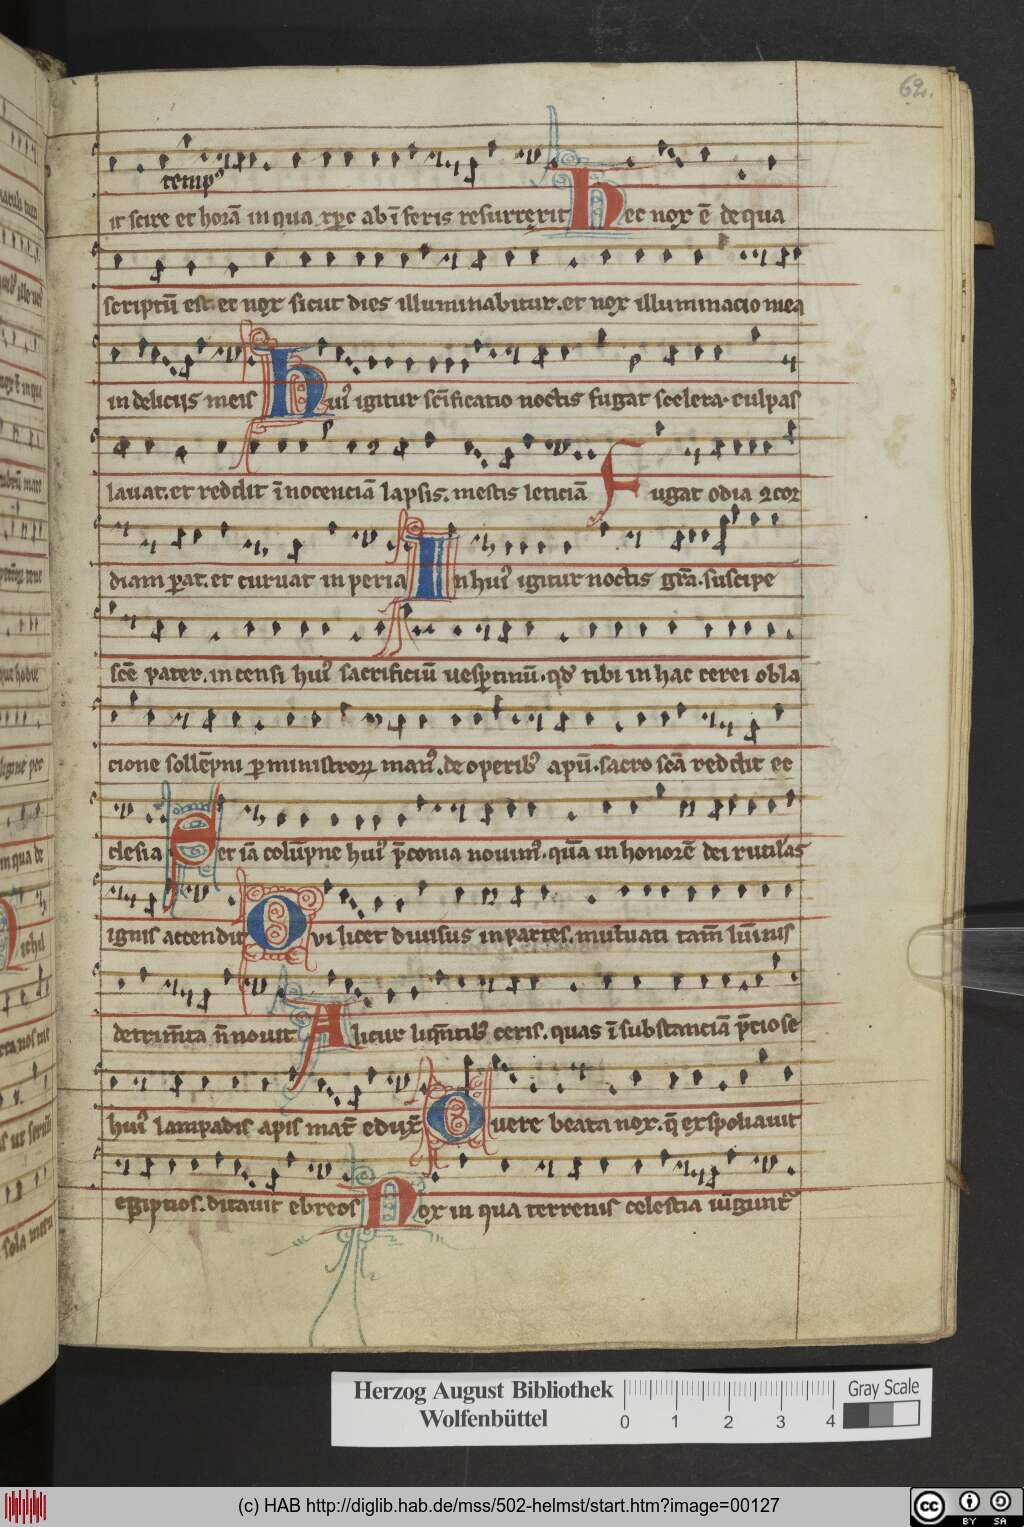 62.
temp⁹
it scire et horā in qua xp̄c ab īferis resurrexit Hec nox ē de qua
scriptū est. et nox sicut dies illuminabitur. et nox illuminacio mea
in delicijs meis Hui⁹ igitur sc̄ificatio noctis fugat scelera. culpas
lauat. et reddit īnocenciā lapsis. mestis leticiā Fugat odia 2cor
diam ꝑat. et curuat inperia In hui⁹ igitur noctis gr̄a. suscipe
sc̄e pater. incensi hui⁹ sacrificiū uesꝑtinū. qd̄ tibi in hac cerei obla
cione sollēpni ꝑ ministroꝝ man⁹. de operib⁹ apū. sacro sc̄a reddit ec
clesia Set iā colūpne hui⁹ p̄conia nouim⁹. quā in honorē dei rutilās
ignis accendit Qui licet diuisus in partes. mutuati tam̄ lūinis
detrim̄ta n̄ nouit Alitur liqn̄tib⁹ ceris. quas ī substanciā p̄ciose
hui⁹ lampadis apis mat̄ eduxt̄ O uere beata nox. q̄ exspoliauit
egiptios. ditauit ebreos Nox in qua terrenis celestia iūgunt̄
Herzog August Bibliothek
Wolfenbüttel
Gray Scale
0 1 2 3 4
(c) HAB http://diglib.hab.de/mss/502-helmst/start.htm?image=00127
cc BY SA